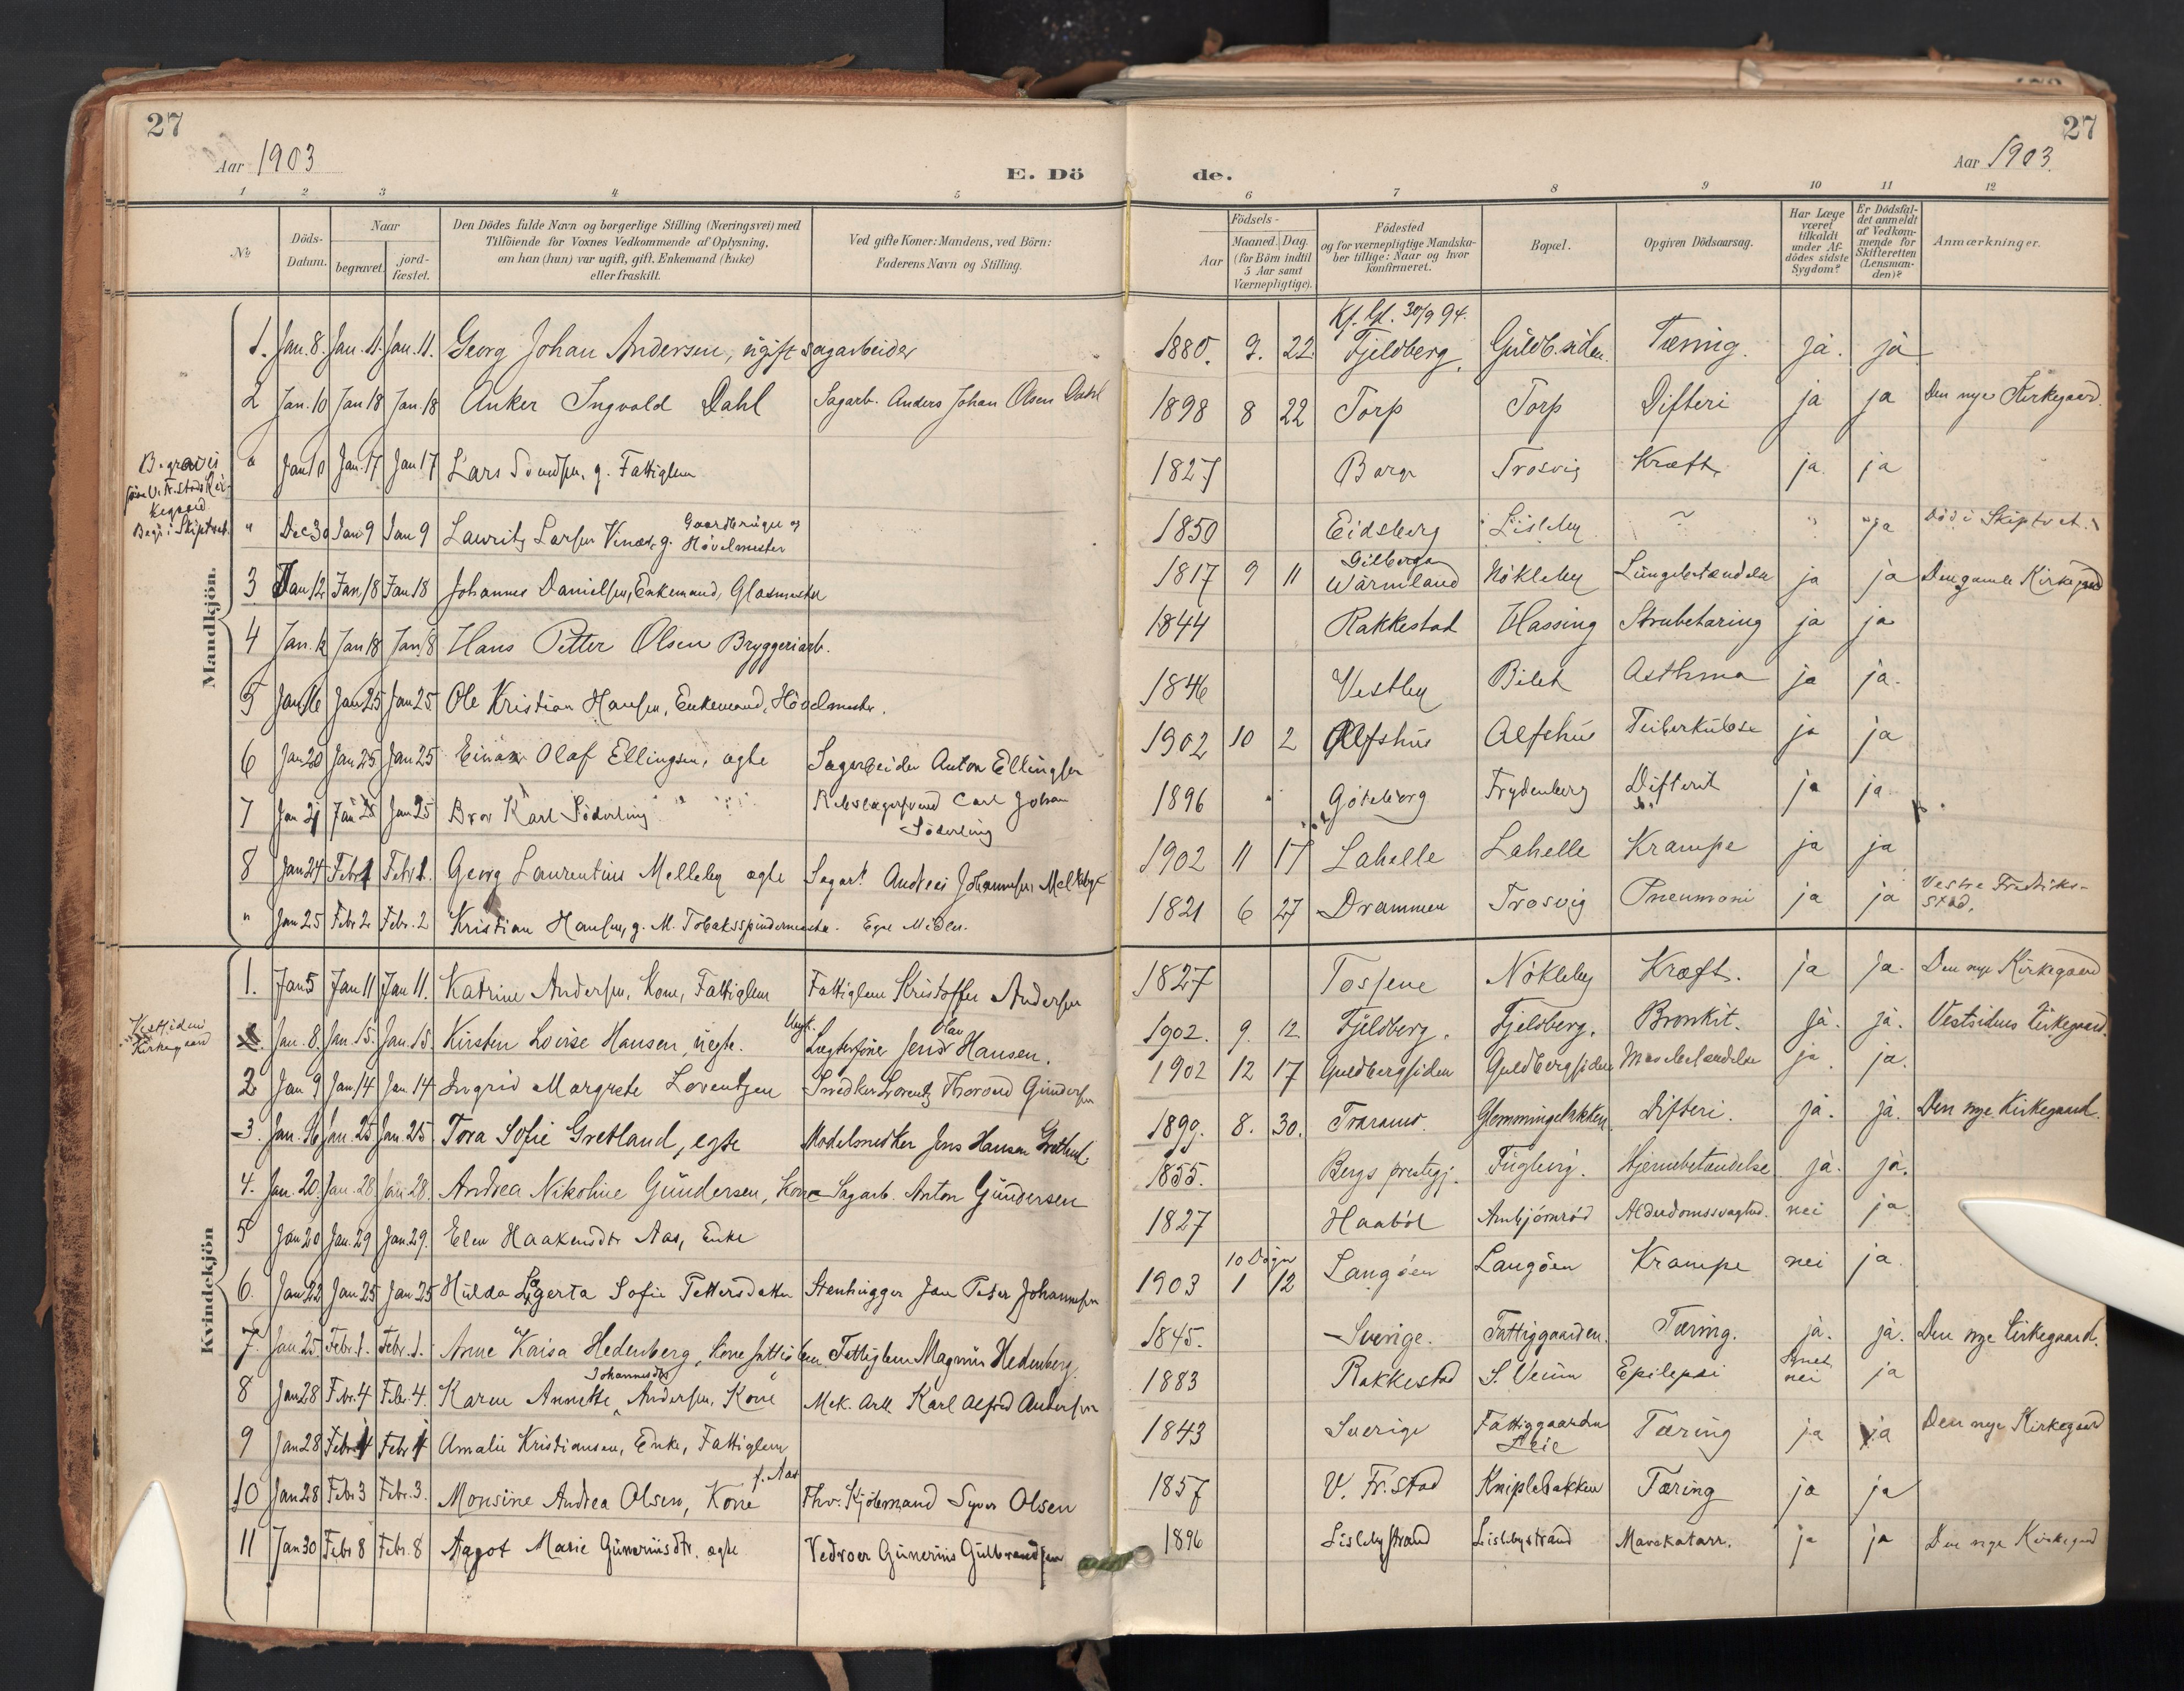 27
27
Aar 1903
E. Dö
de.
Aar 1903.
1 2 3 4 5 6 7 8 9 10 11 12
№
Döds-
Datum.
Naar
begravet.
jord-
fæstet.
Den Dödes fulde Navn og borgerlige Stilling (Næringsvei) med
Tilföiende for Voxnes Vedkommende af Oplysning,
om han (hun) var ugift, gift, Enkemand (Enke)
eller fraskilt.
Ved gifte Koner: Mandens, ved Börn:
Faderens Navn og Stilling.
Födsels-
Aar
Maaned. Dag.
(for Börn indtil
5 Aar samt
Værnepligtige).
Födested
og for værnepligtige Mandska-
ber tillige: Naar og hvor
konfirmeret.
Bopæl.
Opgiven Dödsaarsag.
Har Læge
været
tilkaldt
under Af-
dödes sidste
Sygdom?
Er Dödsfal-
det anmeldt
af Vedkom-
mende for
Skifteretten
(Lensman-
den)?
Anmærkninger.
Mandkjön.
Kf. Gl. 30/9 94.
1. Jan. 8. Jan. 11. Jan. 11. Georg Johan Andersen, ugift sagarbeider 1880. 9. 22. Fjeldberg. Guldb.siden. Tæring. ja. ja
2 Jan. 10 Jan 18 Jan. 18 Anker Ingvald Dahl Sagarb. Anders Johan Olsen Dahl 1898 8 22 Torp Torp Difteri ja ja Den nye Kirkegaard.
" Jan 10 Jan. 17 Jan 17 Lars g. Fattiglem 1827 Borge Trosvig Kræft ja ja
Kirkegaard
Begr. i Skiptvet. " Dec 30 Jan 9 Jan 9 Lauritz Larsen g. Gaardbruger og
Hövelmester 1850 Eidsberg Lisleby ~ " "ja Död i Skiptvet.
3 Jan 12 Jan. 18 Jan 18 Johannes Danielsen, Enkemand, Glasmester 1817 9 11 Gilberga
Wärmland Nökleby Lungebetændelse ja ja Den gamle Kirkegaard
4 Jan. 12 Jan 18 Jan 18 Hans Petter Olsen Bryggeriarb. 1844 Rakkestad Hassing Strubetæring ja ja
5 Jan. 16 Jan 25 Jan 25 Ole Kristian Hansen, Enkemand, Hövelmester. 1846 Vestby Bilet Asthma ja ja.
6 Jan 20 Jan 25 Jan 25 Einar Olaf Ellingsen, ægte Sagarbeider Anton Ellingsen 1902 10 2 Alfshus Alfshus Tuberkulose ja ja
7 Jan 21 Jan 25 Jan 25 Bror Karl Söderling " Rebslagersvend Carl Johan
Söderling 1896 Göteborg Frydenberg Difterit ja ja
8 Jan 24 Febr 1 Febr 1. Georg Laurentius Melleby ægte Sagarb. Andreas Johannesen Melleby 1902 11 17 Lahelle Lahelle Krampe ja ja
" Jan 25 Febr 2 Febr. 2 Kristian Hansen, g. M. Tobaksspindermester. Egne Midler. 1821 6 27 Drammen Trosvig Pneumoni ja ja Vestre Fredriks-
stad.
Kvindekjön
1. Jan 5 Jan 11 Jan 11. Katrine Andersen, Kone, Fattiglem Fattiglem Kristoffer Andersen 1827 Tossene Nökleby Kræft. ja ja. Den nye Kirkegaard
Vestsidens
Kirkegaard Jan. 8. Jan. 15. Jan. 15. Kirsten Lovise Hansen, uegte. Ungk.
Lægterfører Jens Olav Hansen. 1902. 9. 12. Fjeldberg. Fjeldberg. Bronkit. ja. ja. Vestsidens Kirkegaard.
2 Jan 9 Jan. 14 Jan 14 Ingrid Margrete Lorentzen Snedker Lorentz Thorvald Gundersen 1902 12 17 Guldbergsiden Guldbergsiden ja ja.
3. Jan. 16 Jan. 25 Jan. 25 Tora Sofie Gretland, egte Modelsnedker Jens Hansen Gretland. 1899. 8. 30. Traraner. Glemmingebakken. Difteri. ja. ja. Den nye Kirkegaard.
4. Jan. 20. Jan. 28 Jan 28. Andrea Nikoline Gundersen, Kone Sagarb. Anton Gundersen 1855. Bergs prestegj. Fuglevig. Hjernebetændelse. ja. ja.
5 Jan 20 Jan. 29 Jan. 29. Elen Haakensdtr Aas, Enke 1827 Haaböl Ambjörnröd Alderdomssvaghed. nei ja
10 Dage
6. Jan 22 Jan 25 Jan 25 Hulda Lagerta Sofie Pettersdatter Stenhugger Jan Peter Johannesen 1903 1 12 Langöen Langöen Krampe nei ja
7. Jan. 25 Febr. 1. Febr. 1. Anne Kaisa Hedenberg, Kone fattiglem Fattiglem Magnus Hedenberg. 1845. Sverige. Fattiggaarden. Tæring. ja. ja. Den nye Kirkegaard.
8 Jan 28 Febr. 4 Febr. 4. Karen Annette Johannesdtr Andersen, Kone Mek. Arb. Karl Alfred Andersen 1883 Rakkestad S. Veum Epilepsi nei ja
9 Jan 28 Febr 4 Febr 4 Amalie Kristiansen, Enke, Fattiglem 1843 Sverige Fattiggaarden
Leie Tæring ja ja Den nye Kirkegaard
10 Jan 28 Febr 3 Febr. 3. Monsine Andrea Olsen, Kone f. Aas Fhv. Kjölemand Syver Olsen 1857 V. Fr.stad Kniplebakken Tæring ja ja
11 Jan 30 Febr 8 Febr. 8 Aagot Marie Guneriusdtr. ægte Vedroer Gunerius Gulbrandsen 1896 Lislebystrand Lislebystrand Mavekatarr. ja ja Den nye Kirkegaard